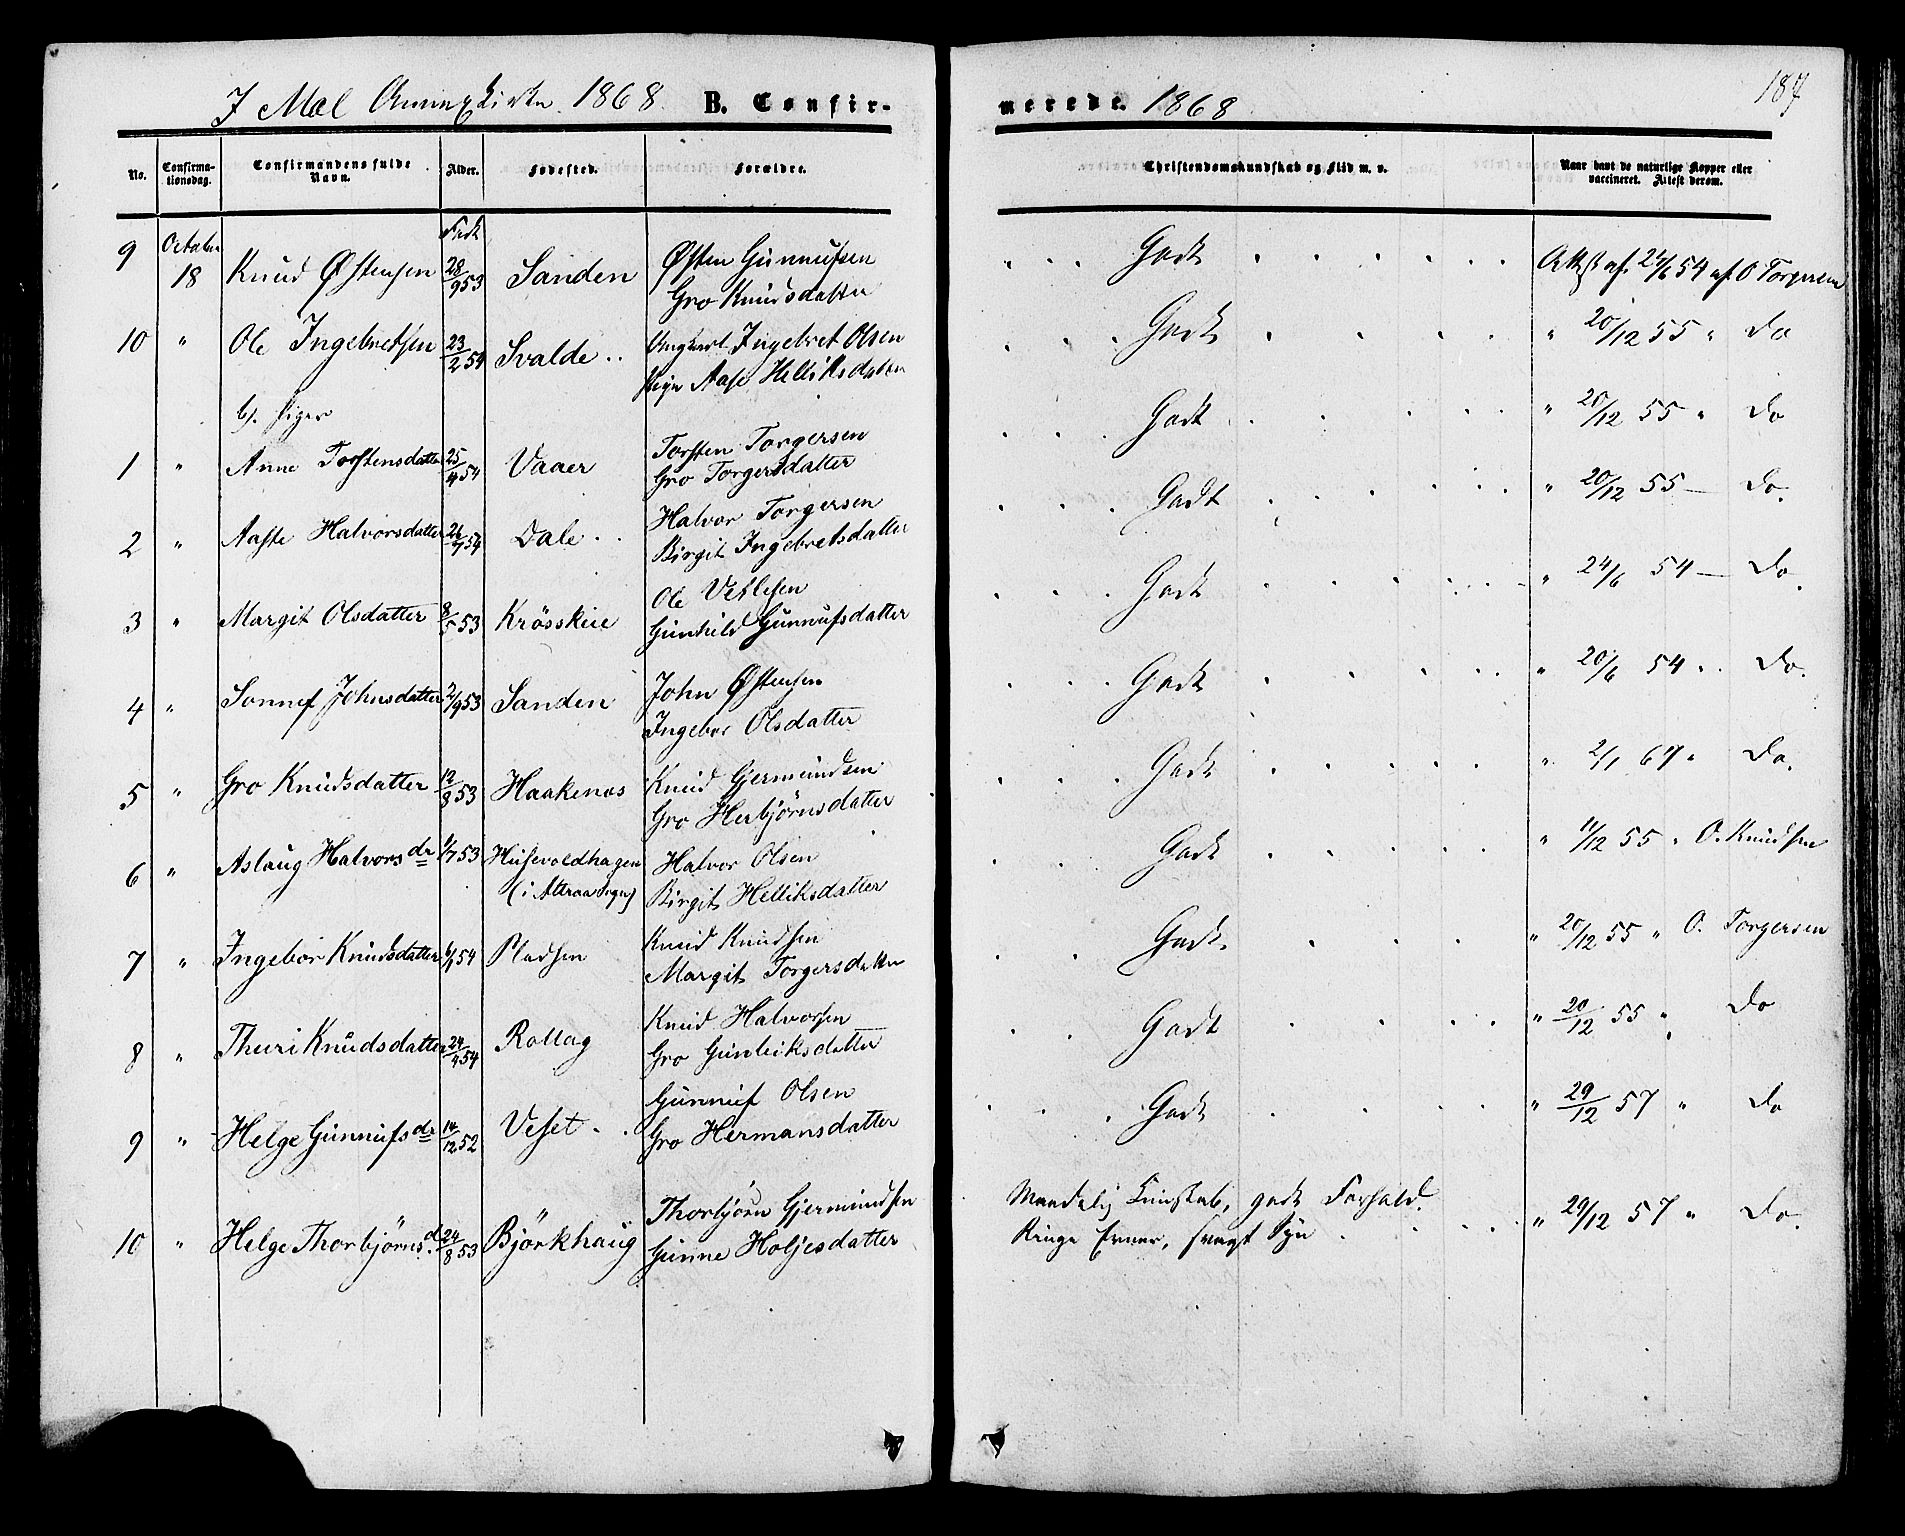 I Mæl Annexkirke 1868. B. Confir-
merede. 1868
187
No.
Confirma-
tionsdag.
Confirmandens fulde
Navn.
Alder.
Fødested.
Forældre.
Christendomskundskab og Flid m. v.
Naar havt de naturlige Kopper eller
vaccineret. Attest derom.
Født
9 October 18 Knud Østensen 28/9 53 Sanden Østen Gunnufsen
Gro Knudsdatter
Godt Attest af 24/6 54 af O Torgersen
10 " Ole Ingebretsen 23/2 54 Svalde Ungkarl Ingebret Olsen
Pige Aase Helliksdatter
Godt " 20/12 55 " Do
b). Piger
1 " Anne Torstensdatter 25/4 54 Vaaer Torsten Torgersen
Gro Torgersdatter
Godt " 20/12 55 " Do
2 " Aaste Halvorsdatter 26/7 54 Dale Halvor Torgersen
Birgit Ingebretsdatter
Godt " 20/12 55 — Do.
3 " Margit Olsdatter 8/5 53 Krösskeie Ole Veslesen
Gunhild Gunnufsdatter
Godt " 24/6 54 — Do.
4 " Sonnef Johnsdatter 2/9 53 Sanden John Østensen
Ingebor Olsdatter
Godt " 20/6 54 Do.
5 " Gro Knudsdatter 12/8 53 Haakenæs Knud Gjermundsen
Gro Herbjörnsdatter
Godt " 2/1 67 " Do.
6 " Aslaug Halvorsdr 1/7 53 Husevoldhagen
(i Attraa Sogn)
Halvor Olsen
Birgit Helliksdatter
Godt " 11/12 55 " O. Knudsen
7 " Ingebor Knudsdatter 6/1 54 Pladsen Knud Knudsen
Margit Torgersdatter
Godt. " 20/12 55 " O. Torgersen
8 " Thuri Knudsdatter 24/4 54 Rollag Knud Halvorsen
Gro Gunleiksdatter
Godt " 20/12 55 " Do
9 " Helge Gunnufsdr 14/12 52 Veset Gunnuf Olsen
Gro Hermansdatter
Godt " 29/12 57 " Do
10 " Helge Thorbjörnsd. 24/8 53 Björkhaug Thorbjörn Gjermundsen
Gunne Holjesdatter
Maadelig Kundskab, godt Forhold.
Ringe Evner, svagt Syn
" 29/12 57 " Do.